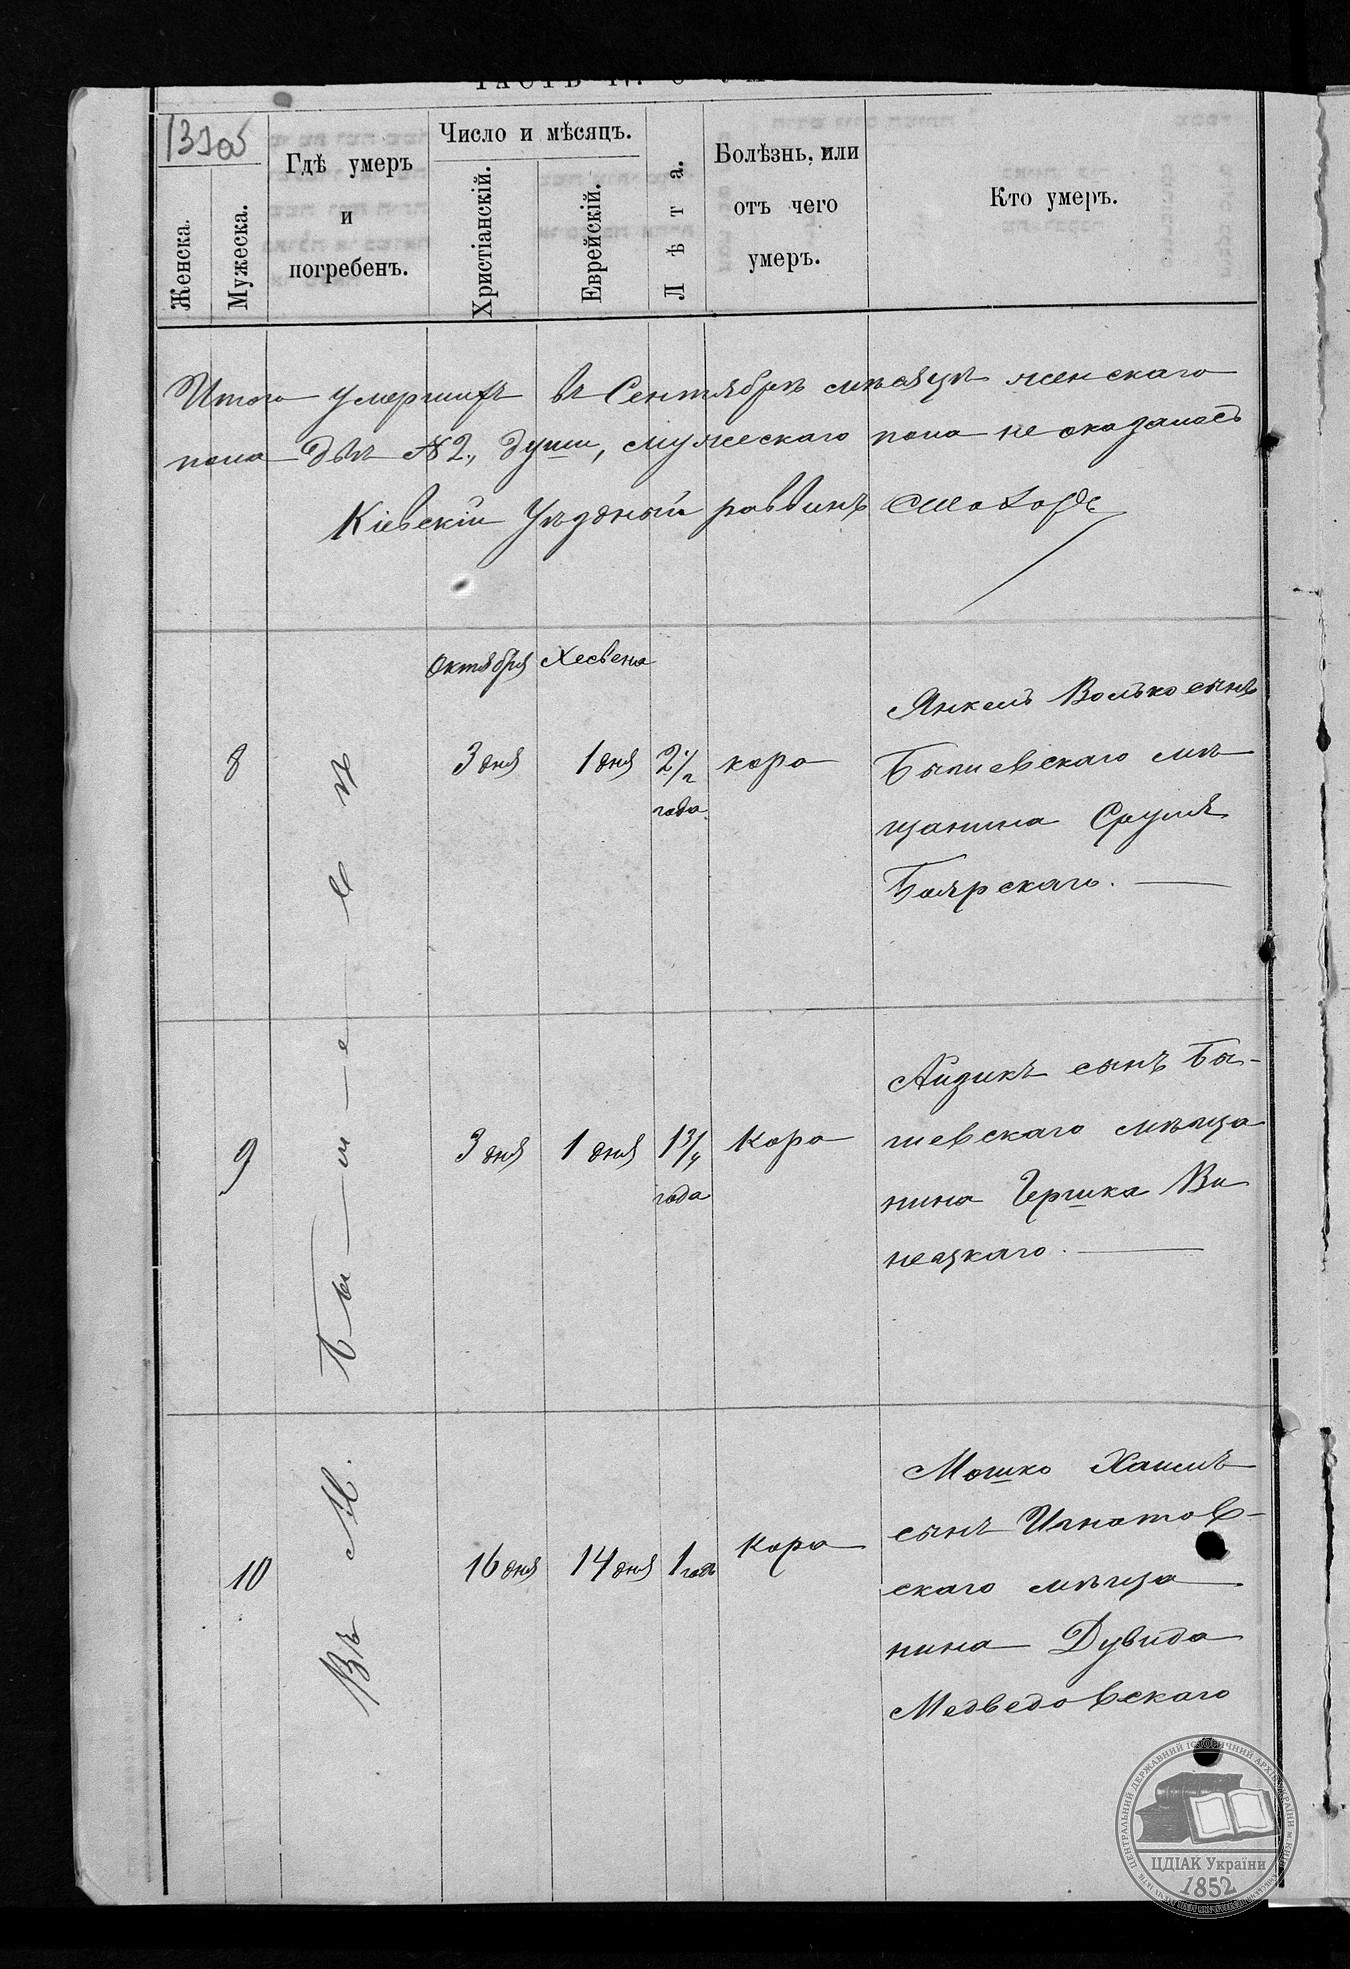 Женска.
Мужеска.
Гдѣ умеръ
и
погребенъ.
Число и мѣсяцъ.
Христіанскій.
Еврейскій.
Лѣта.
Болѣзнь, или
отъ чего
умеръ.
Кто умеръ.
Итого умершихъ въ Сентябрѣ мѣсяцѣ женскаго
пола двѣ №2, души, мужескаго пола не оказалось
Кіевскій Уѣздный раввинъ
Октября Хесвена
8
3 дня
1 дня
2 1/2
года
кора
Янкель Волько сынъ
Бышевскаго мѣ
щанина Сруля
Боярскаго.
9
3 дня
1 дня
1 3/4
года
кора
Айзикъ сынъ Бы-
шевскаго мѣща
нина Гершка Ви
нецкаго.
10
16 дня
14 дня
1 годъ
кора
Мошко Хаимъ
сынъ Игнатов-
скаго мѣща
нина Дувида
Медведовскаго
Въ М. Бышевѣ
ЦЕНТРАЛЬНИЙ ДЕРЖАВНИЙ ІСТОРИЧНИЙ АРХІВ УКРАЇНИ м. КИЇВ
ЦДІАК України
1852